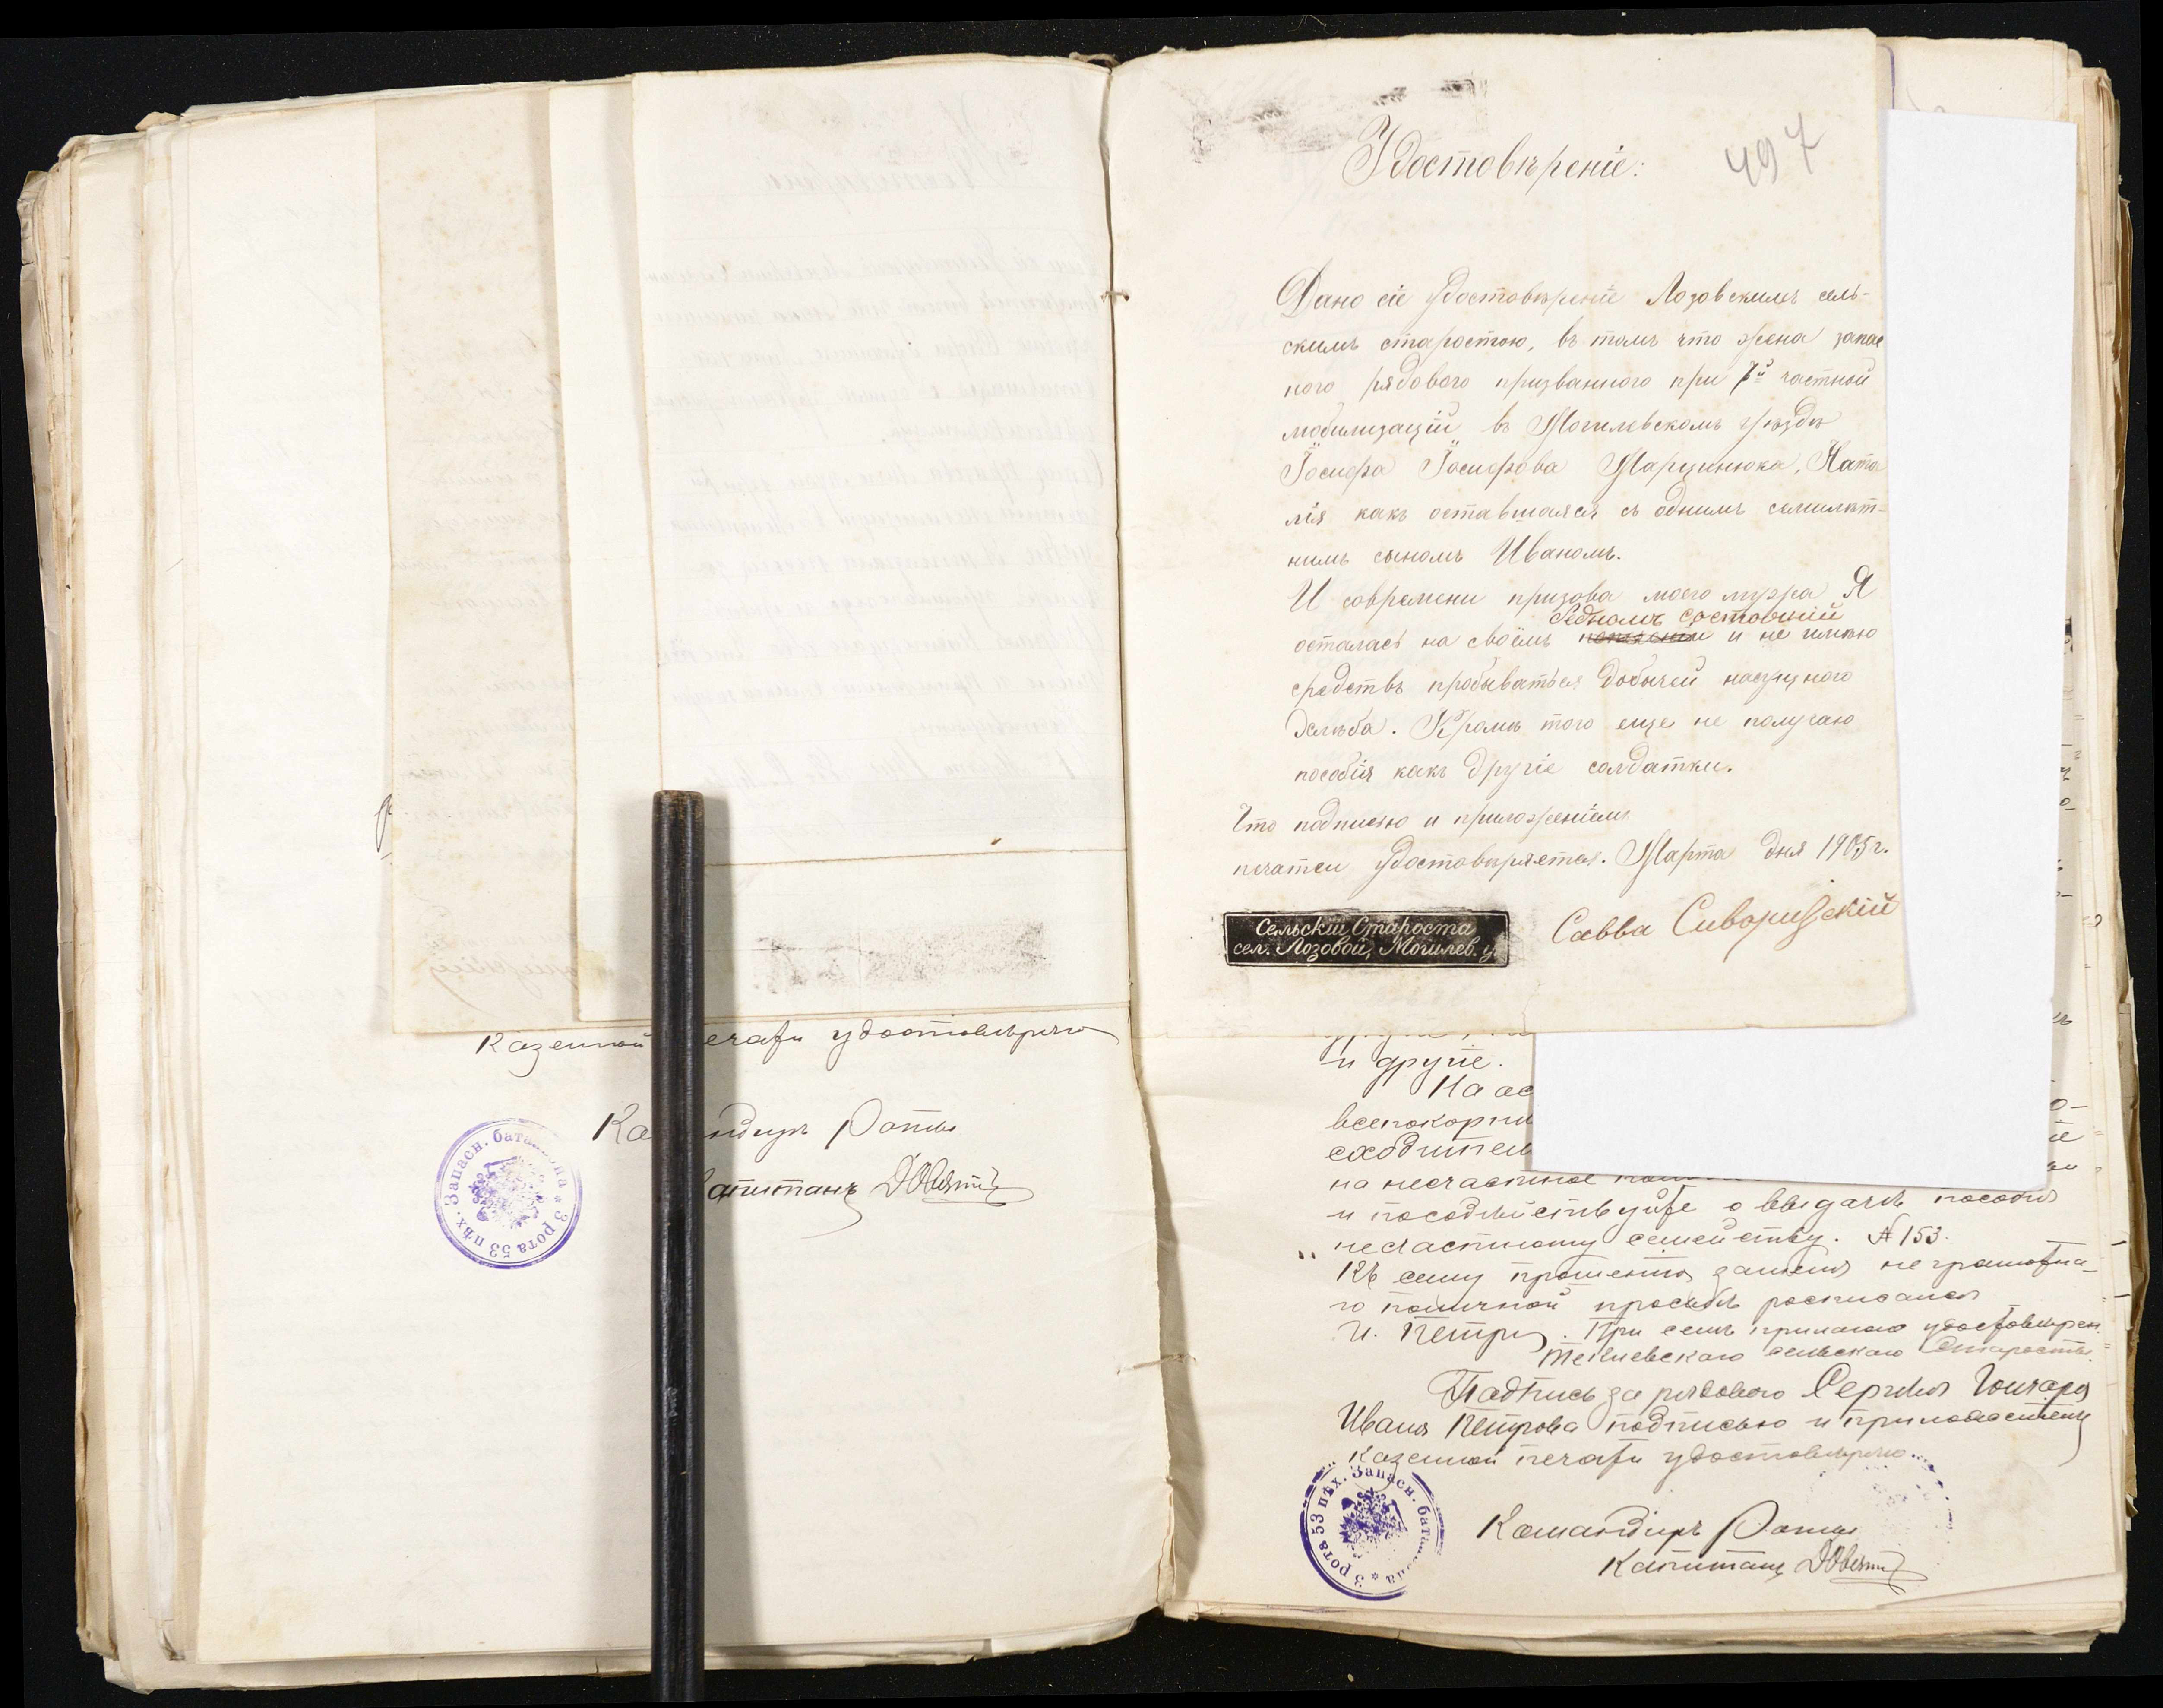 Казенной печати удостовѣряю
Командиръ Роты
Капитанъ
3 рота 53 пѣх. Запасн. баталіона
497
Удостовѣреніе:
Дано сіе удостовѣреніе Лозовскимъ сель-
скимъ старостою, въ томъ что жена запас
ного рядового призванного при 7й частной
мобилизаціи въ Могилевскомъ уѣздѣ
Іосифа Іосифова Марцинюка, Ната
лія какъ оставшаяся съ однимъ семилѣт-
нимъ сыномъ Иваномъ.
И современи призова моего мужа Я
бедномъ состояній
осталась на своёмъ и не имѣю
средствъ пробываться добычей насущного
хлѣба. Кромѣ того еще не получаю
пособія какъ другіе солдатки.
Что подписью и приложеніемъ
печатеи удостовѣряется. Марта дня 1905 г.
Сельскій Староста
сел. Лозовой, Могилев. у.
Савва Сиворизскій
и другіе.
На ос
всепокорнѣ
сходител
на несчастное
и посодѣйствуйте о выдачѣ пособія
несчастному семейству. № 153.
Къ сему прошенію за неграмотна-
го по личной просьбѣ росписался
И. Петри. При семъ прилагаю удостовѣрен.
сельскаго Старосты.
Подпись за рядового Сергѣя Гончара
Ивана Петрова подписью и приложеніемъ
казенной печати удостовѣряю
3 рота 53 пѣх. Запасн. баталіона
Командиръ Роты
Капитанъ